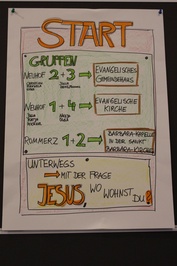 START
GRUPPEN
NEUHOF 2+3 → EVANGELISCHES
GEMEINDEHAUS
NEUHOF 1+4 → EVANGELISCHE
KIRCHE
ROMMERZ 1+2 → BARBARA-KAPELLE
IN DER SANKT
BARBARA-KIRCHE
UNTERWEGS
→ MIT DER FRAGE
JESUS, WO WOHNST
DU?